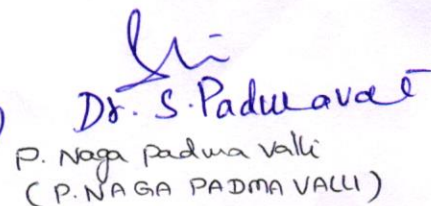 Dr. S. Padmavati
P. Naga padma valli
(P. NAGA PADMA VALLI)